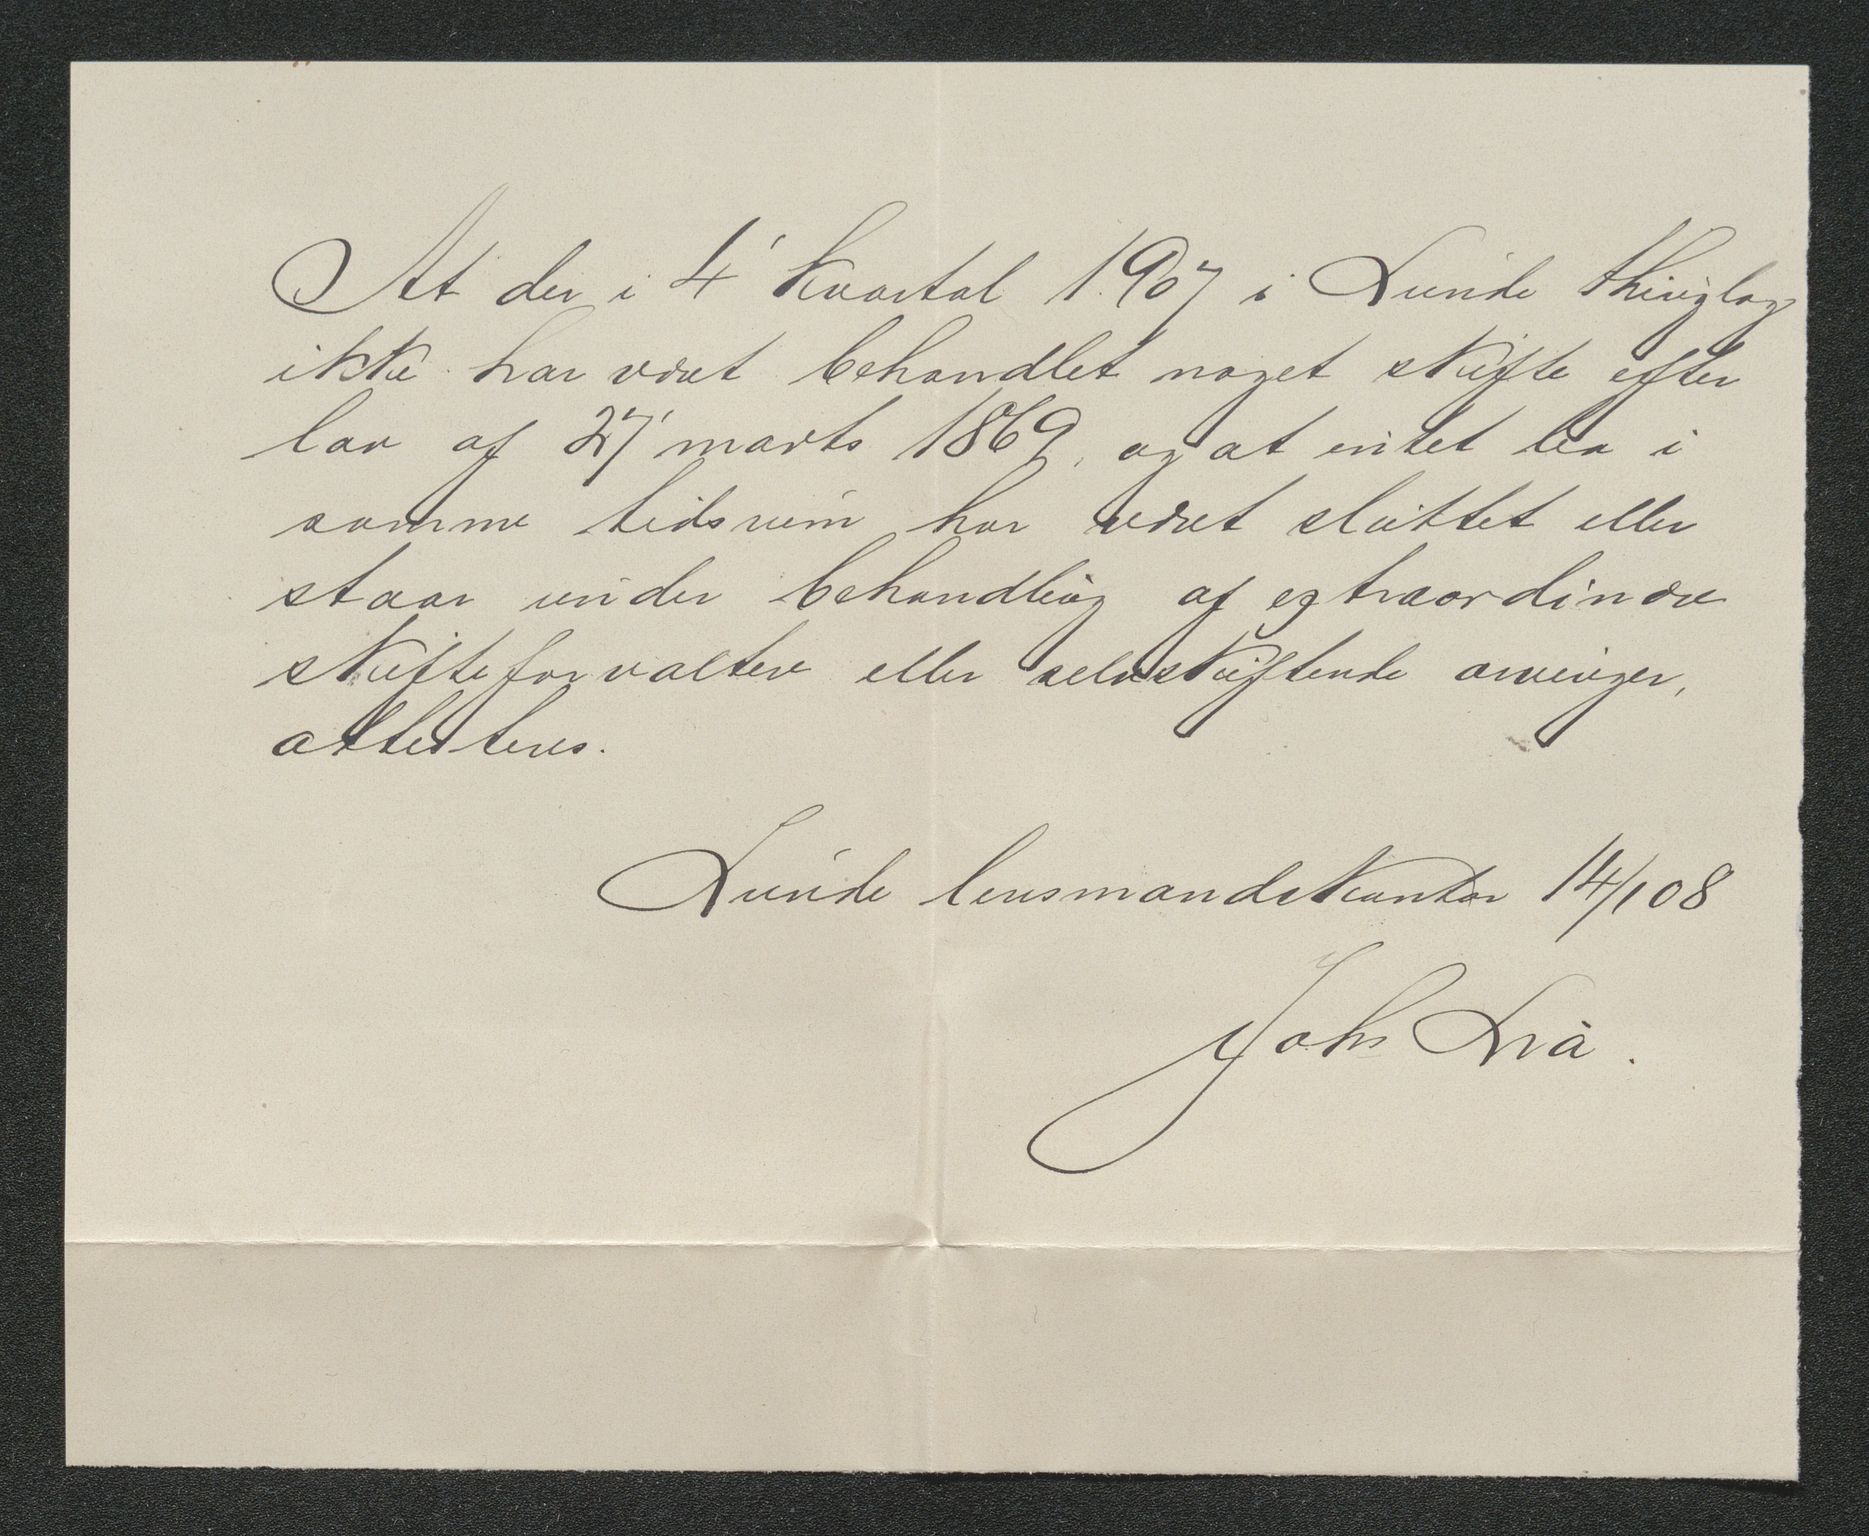 At der i 4' kvartal 1907 i Lunde thinglag
ikke har været behandlet noget skifte efter
lov af 27' marts 1869, og at intet bo i
samme tidsrum har været sluttet eller
staar under behandling af extraordinære
skifteforvaltere eller selvskiftende arvinger,
attesteres.
Lunde lensmandskontor 14/1 08
Johs Lia.